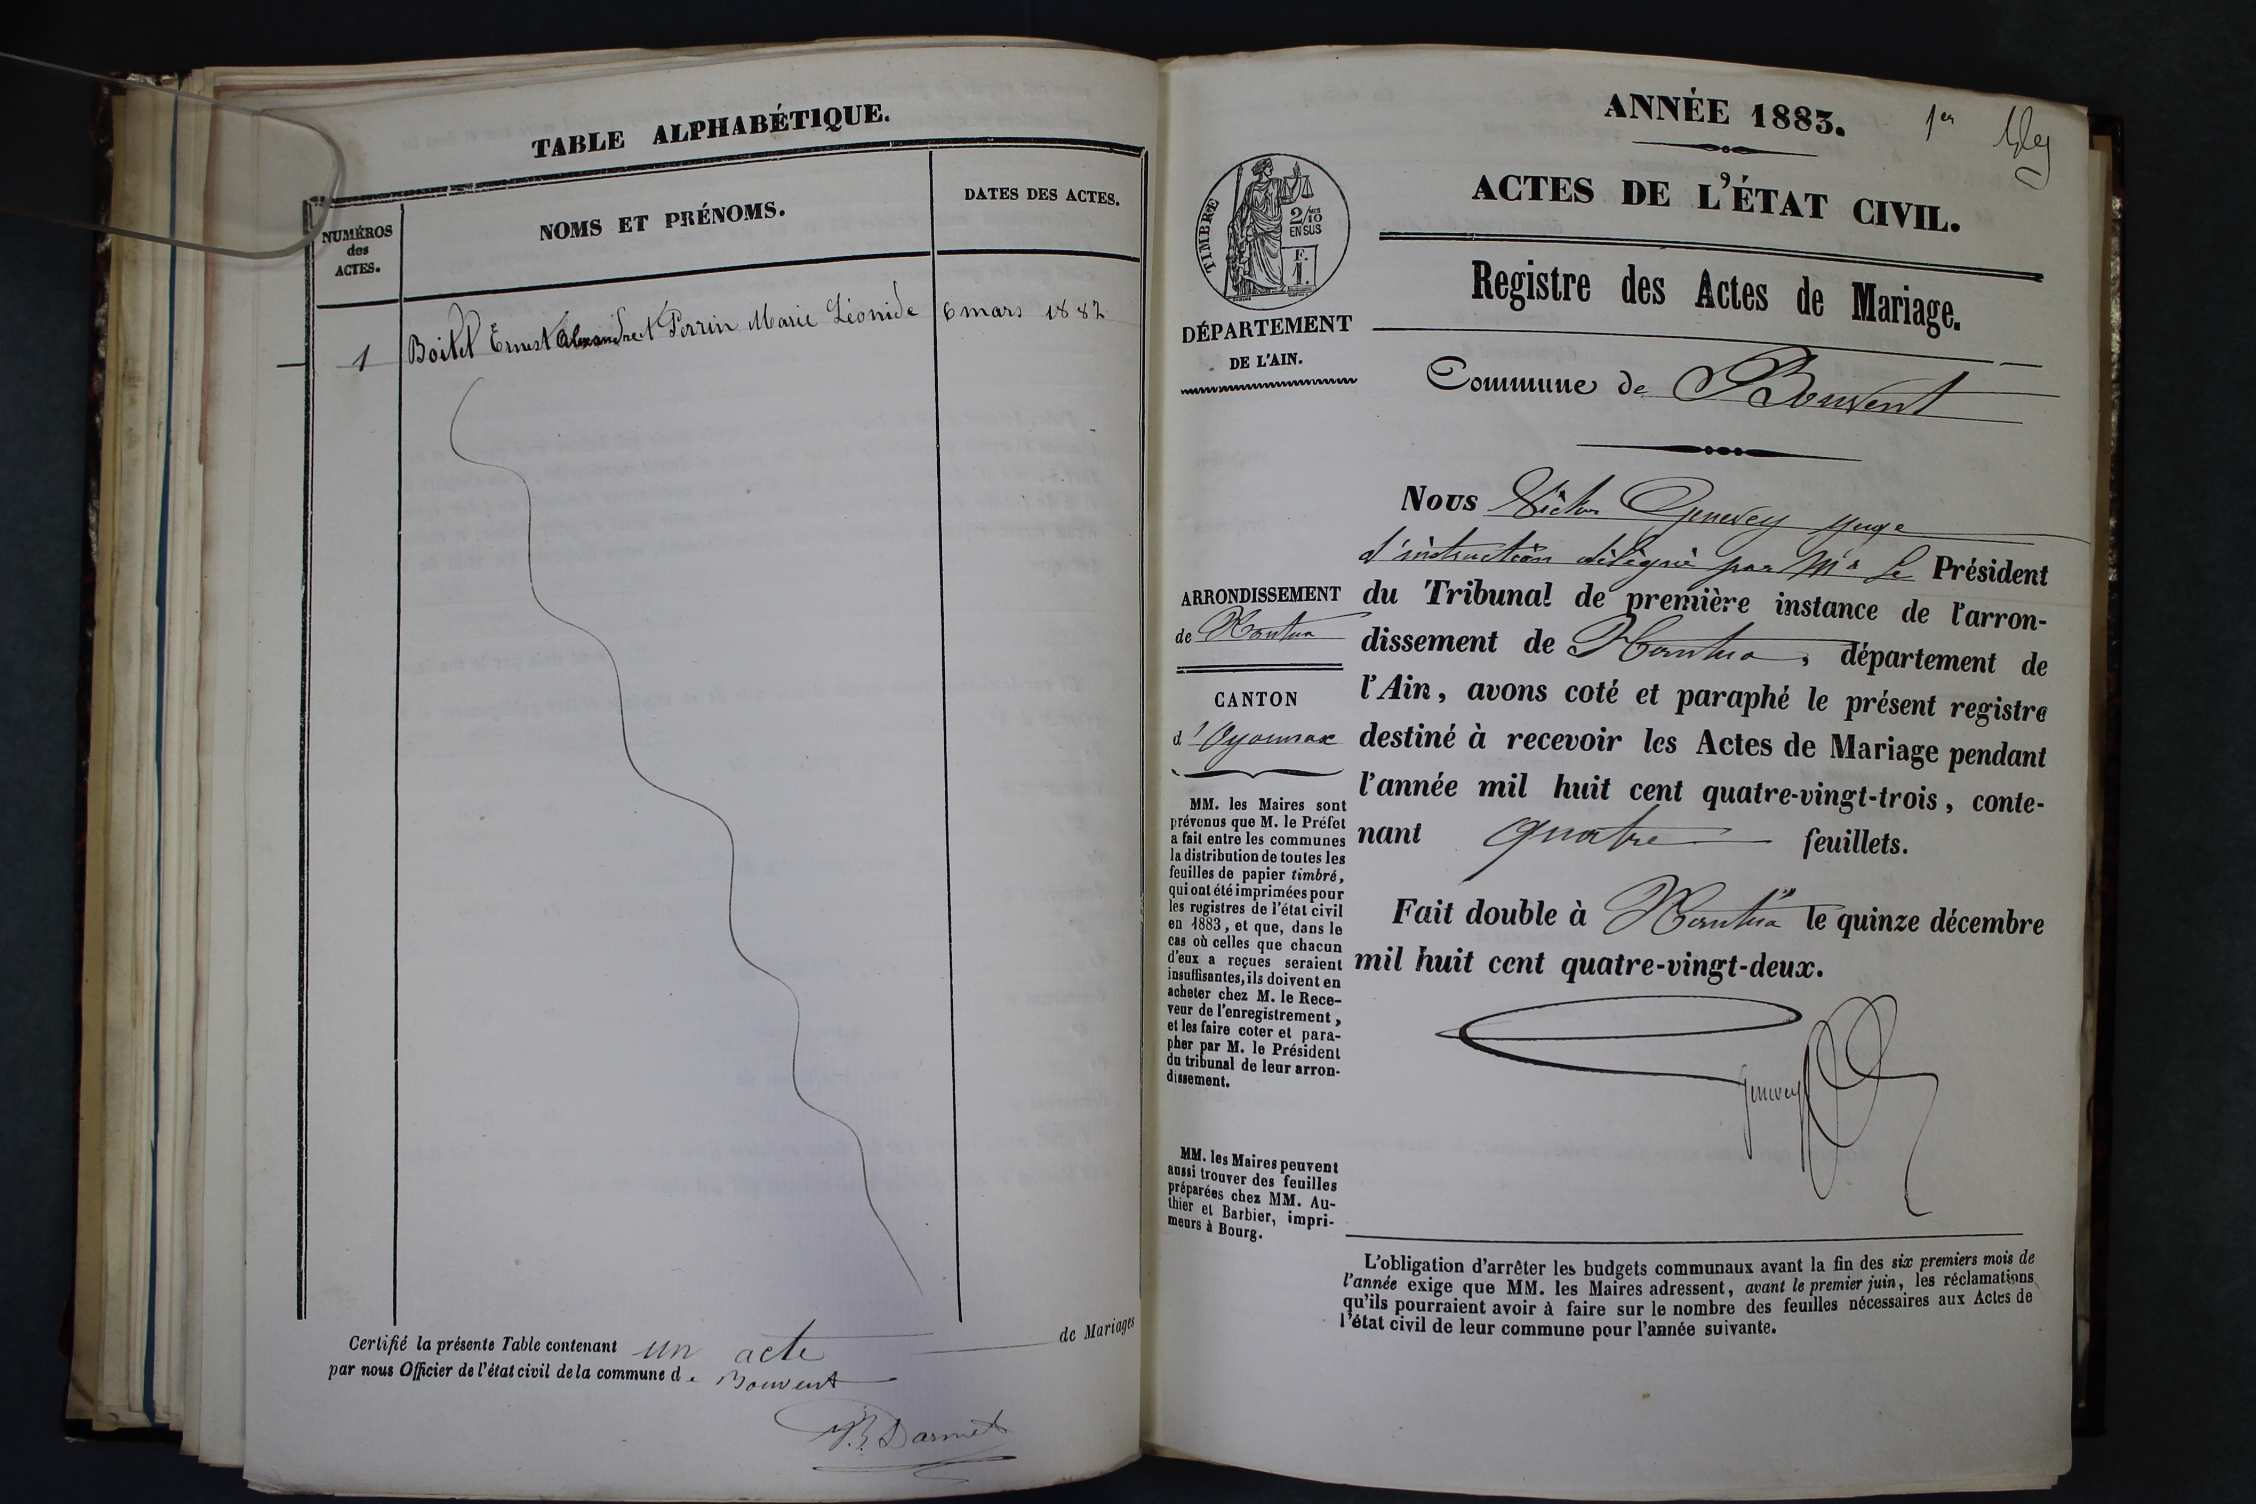 TABLE ALPHABÉTIQUE.
NUMÉROS
des
ACTES.
NOMS ET PRÉNOMS.
DATES DES ACTES.
1 Boitel Ernest Alexandre et Perrin Marie Léonide 6 mars 1882
Certifié la présente Table contenant un acte de Mariages
par nous Officier de l'état civil de la commune de Bouvent
Darmet
ANNÉE 1883.
1er
ACTES DE L'ÉTAT CIVIL.
TIMBRE
2/10
EN SUS
F.
1.
Registre des Actes de Mariage.
DÉPARTEMENT
DE L'AIN.
Commune de Bouvent
Nous Victor Genevey Juge
d'instruction délégué par Mr le Président
du Tribunal de première instance de l'arron-
dissement de Nantua, département de
l'Ain, avons coté et paraphé le présent registre
destiné à recevoir les Actes de Mariage pendant
l'année mil huit cent quatre-vingt-trois, conte-
nant quatre feuillets.
Fait double à Nantua le quinze décembre
mil huit cent quatre-vingt-deux.
Genevey
ARRONDISSEMENT
de Nantua
CANTON
d'Oyonnax
MM. les Maires sont
prévenus que M. le Préfet
a fait entre les communes
la distribution de toutes les
feuilles de papier timbré,
qui ont été imprimées pour
les registres de l'état civil
en 1883, et que, dans le
cas où celles que chacun
d'eux a reçues seraient
insuffisantes, ils doivent en
acheter chez M. le Rece-
veur de l'enregistrement,
et les faire coter et para-
pher par M. le Président
du tribunal de leur arron-
dissement.
MM. les Maires peuvent
aussi trouver des feuilles
préparées chez MM. Au-
thier et Barbier, impri-
meurs à Bourg.
L'obligation d'arrêter les budgets communaux avant la fin des six premiers mois de
l'année exige que MM. les Maires adressent, avant le premier juin, les réclamations
qu'ils pourraient avoir à faire sur le nombre des feuilles nécessaires aux Actes de
l'état civil de leur commune pour l'année suivante.